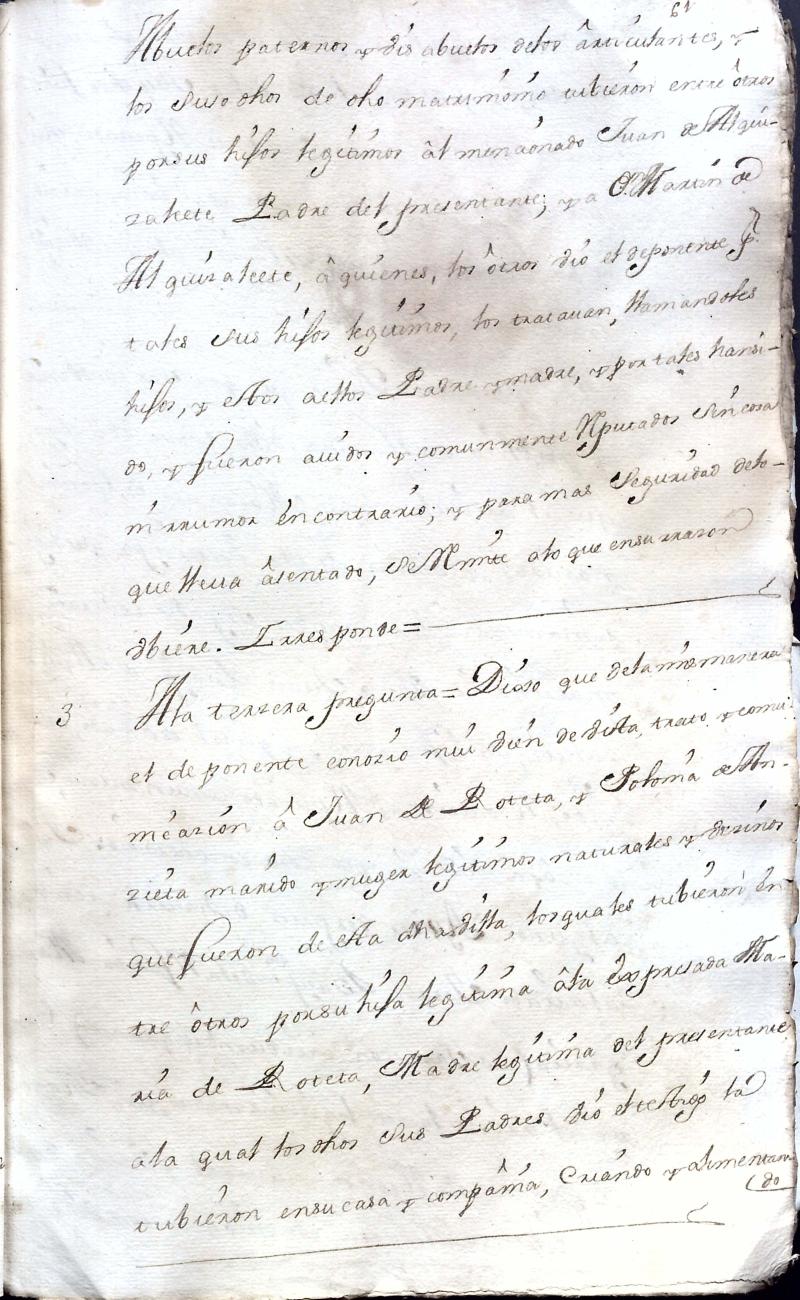 61
Abuelos paternos y Vis abuelos delos ârticulântes, y
los suso dhos de dho matrimonio tubieron entre ôtros
porsus hijos legitimos âl mencionado Juan de Alqui-
zalete Padre del presentante; y a Martin de
Alquizaleete, â quienes, los ôtros vió el deponente pr.
tales sus hijos legitimos, los tratauan, llamandoles
hijos, y estos aellos Padre y madre, y por tales hansi-
do, y fueron auidos y comunmente Rputados sin cosa
ni rrumor encontrario; y para mas Seguridad delo-
que lleua âsentado, se Rmite alo que ensu rrazon
Vbiere. Irresponde=
3 Ala terzera pregunta= Dixo que dela misma manera
el deponente conozio mui vien de vista, trato y comu-
nicazion â Juan de Roteta, y Polonia de An-
zieta marido y muger legitimos naturales y vezinos
que fueron de esta dha villa, los quales tubieron en-
tre ôtros porsu hija legitima âla expresada Ma-
ria de Roteta, Madre legitima del presentante
ala qual los dhos sus Padres vió el testigo la
tubieron ensu casa y compâñia, Criando y alimentan-
do